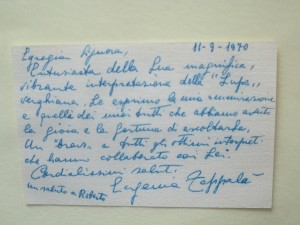 11-9-1970
Egregia Signora,
Entusiasta della Sua magnifica,
vibrante interpretazione della "Lupa"
verghiana, Le esprimo la mia ammirazione
e quella dei miei tutti che abbiamo avuto
la gioia e la fortuna di ascoltarla.
Un "bravi" a tutti gli ottimi interpreti
che hanno collaborato con Lei.
Cordialissimi saluti.
un saluto a Roberto
Zappalà